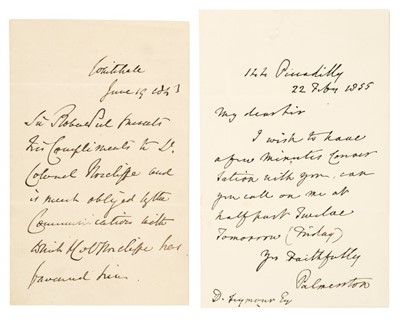 Whitehall
June 19 1843
Sir Robert Peel presents
his Compliments to
Colonel Norcliffe and
is much obliged by the
Communication with
which Col Norcliffe has
favoured him.
144 Piccadilly
22 Feby 1855
My dear Sir
I wish to have
a few minutes Conver
sation with you, can
you call on me at
half past Twelve
Tomorrow (Friday)
Yrs faithfully
Palmerston
D. Seymour Esq